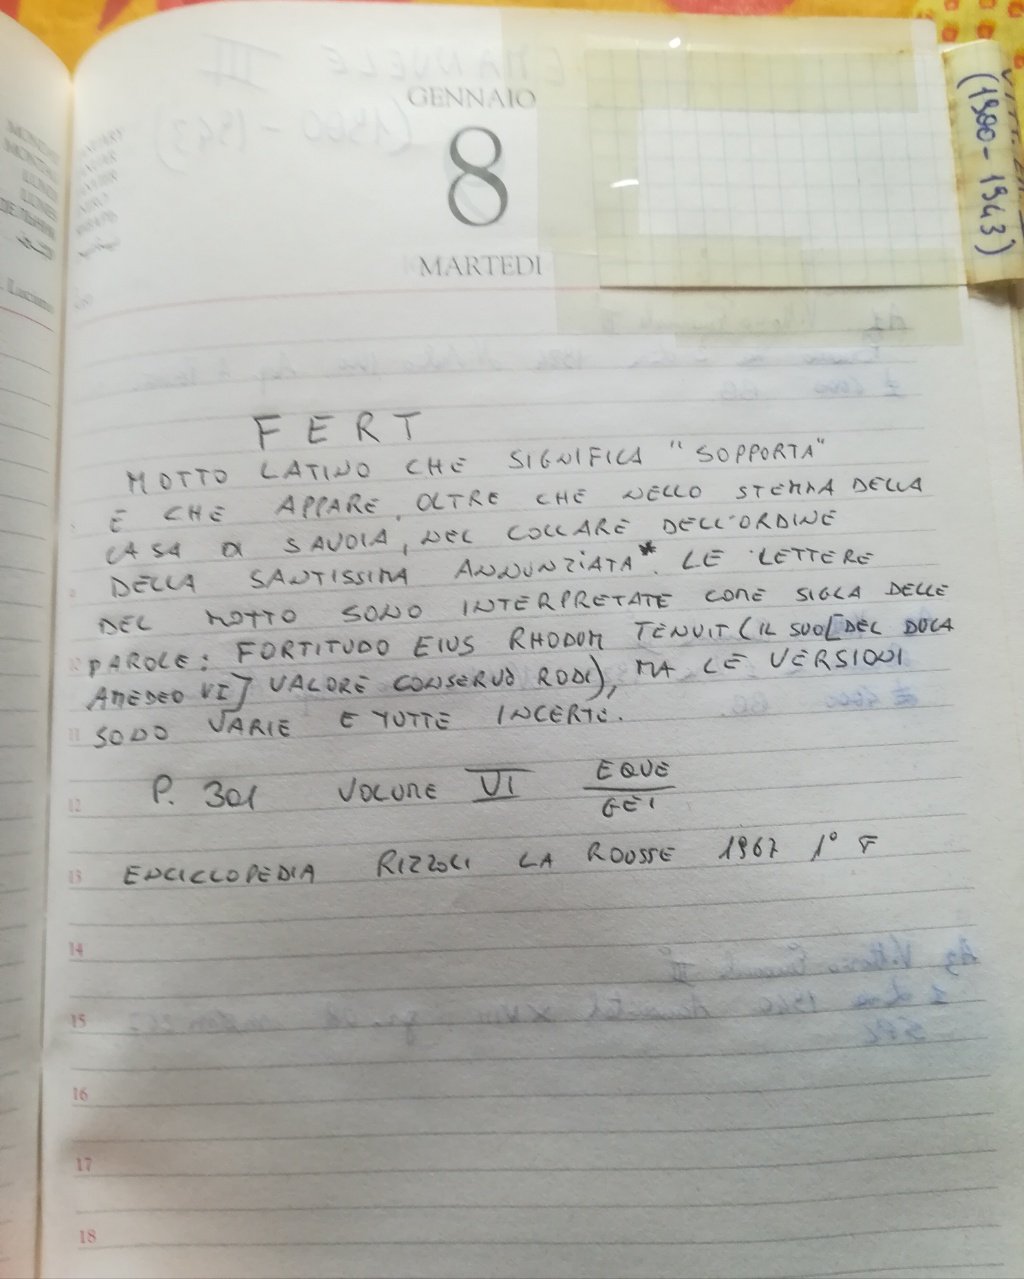 GENNAIO
8
MARTEDI
(1900 - 1943)
FERT
MOTTO LATINO CHE SIGNIFICA "SOPPORTA"
E CHE APPARE, OLTRE CHE NELLO STEMMA DELLA
CASA DI SAVOIA, NEL COLLARE DELL'ORDINE
DELLA SANTISSIMA ANNUNZIATA*. LE LETTERE
DEL MOTTO SONO INTERPRETATE COME SIGLA DELLE
PAROLE: FORTITUDO EIUS RHODUM TENUIT (IL SUO [DEL DUCA
AMEDEO VI] VALORE CONSERVÒ RODI), MA LE VERSIONI
SONO VARIE E TUTTE INCERTE.
P. 301 VOLUME VI EQUE
GEI
ENCICLOPEDIA RIZZOLI LA ROUSSE 1967 1° F
12
13
14
15
16
17
18